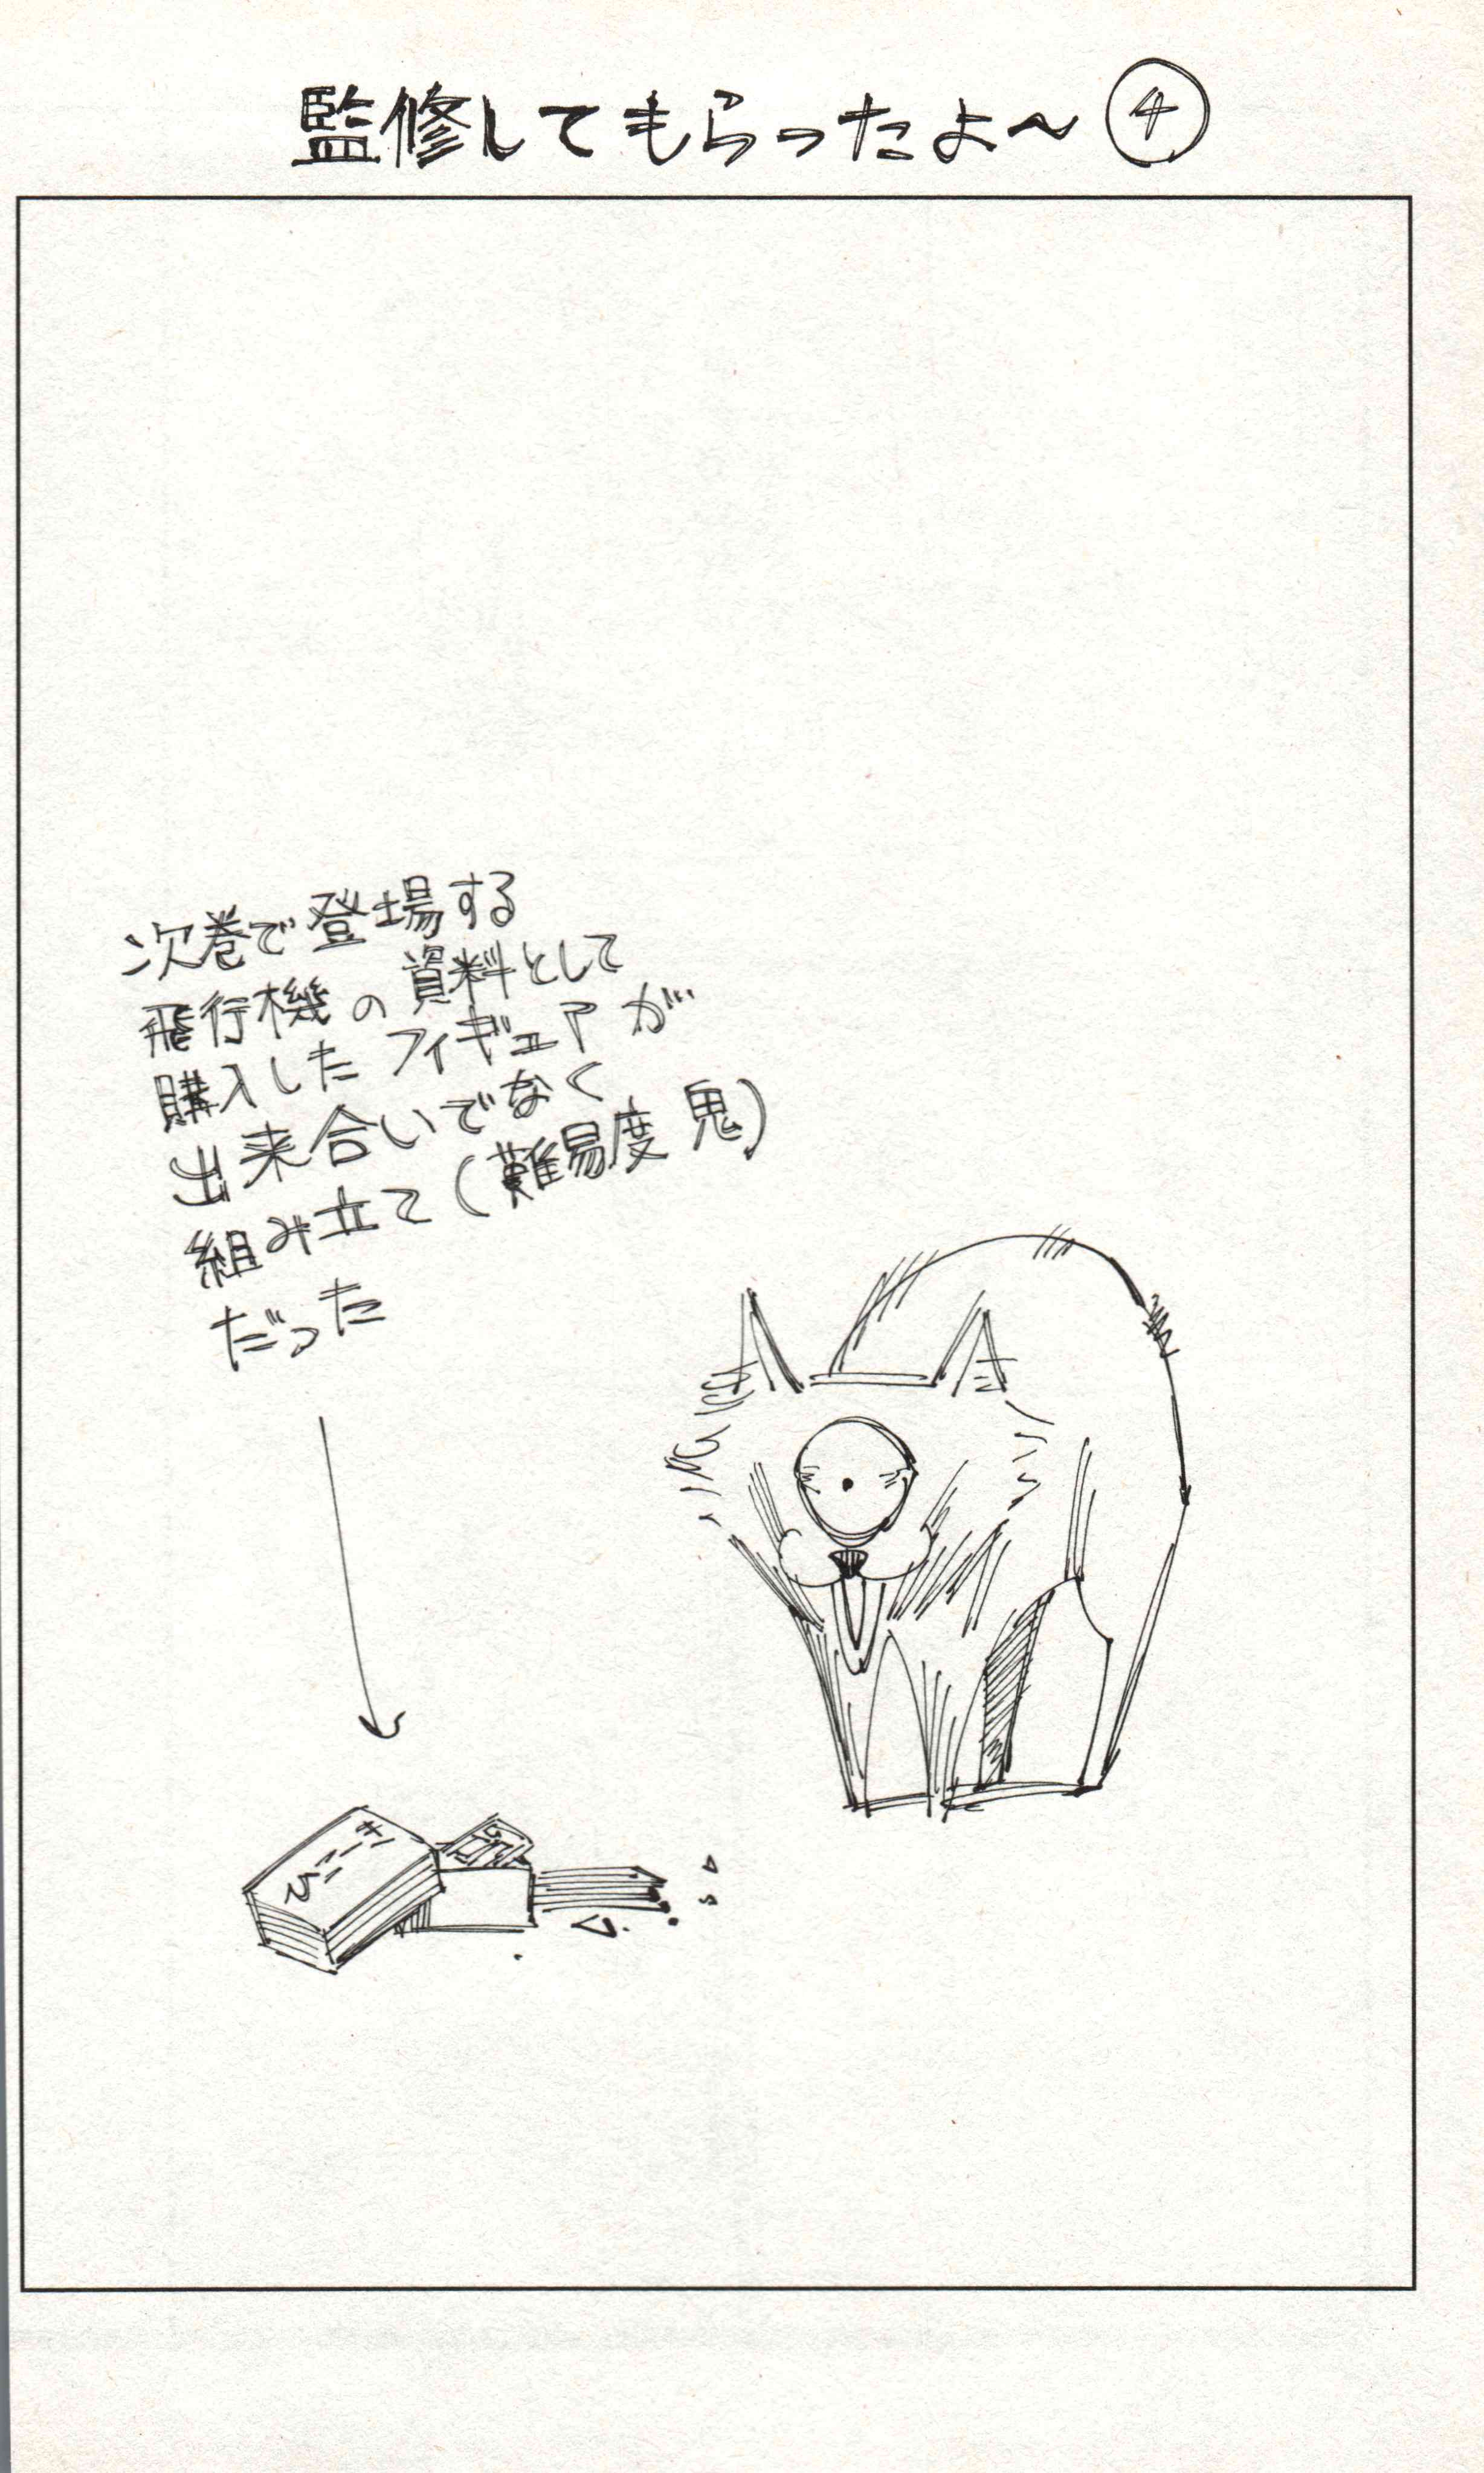 監修してもらったよ〜④
次巻で登場する
飛行機の資料として
購入したフィギュアが…
出来合いでなく
組み立て(難易度 鬼)
だった